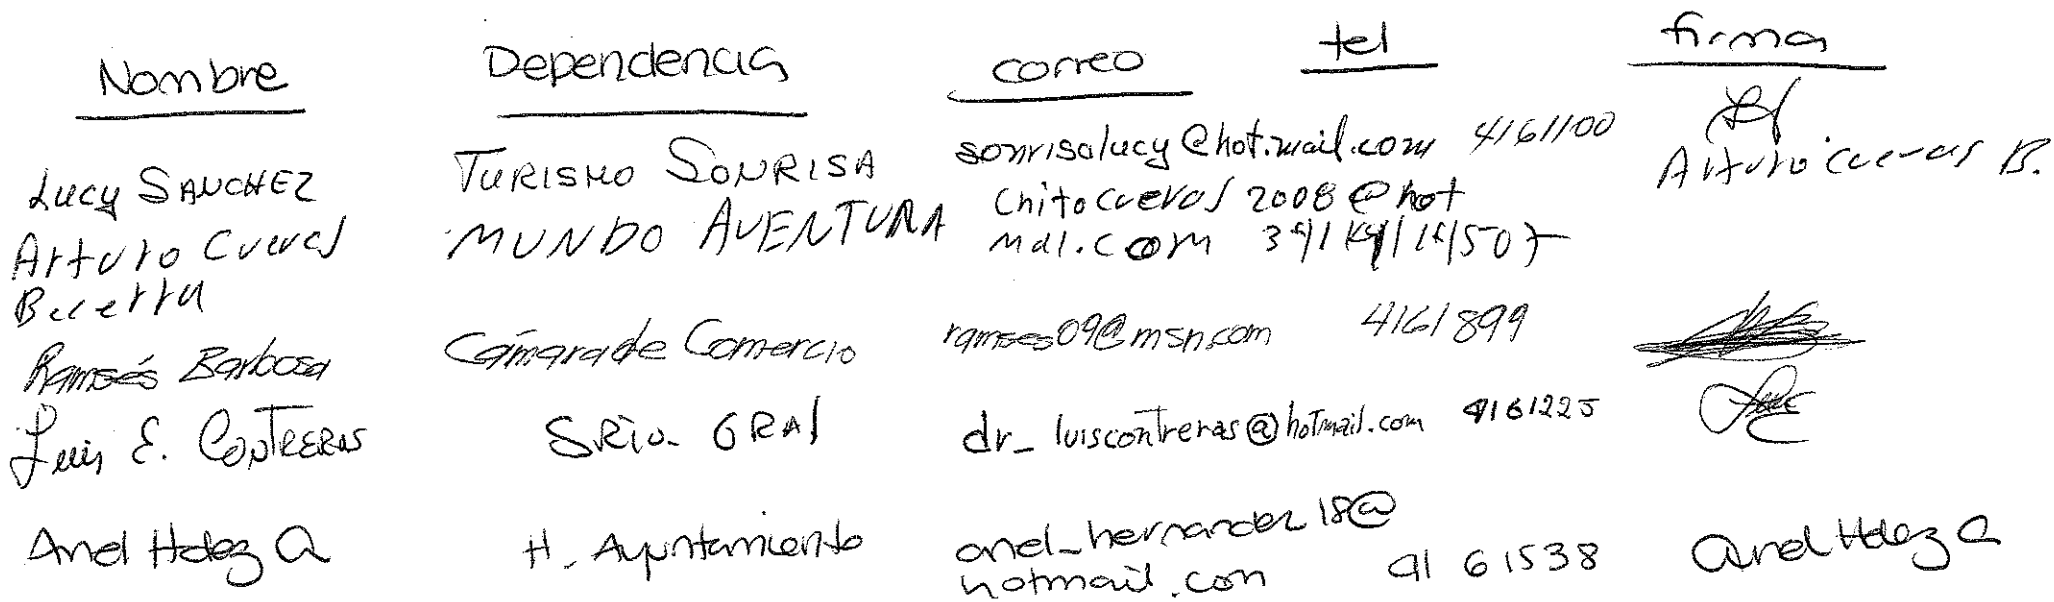 Nombre Dependencia correo tel firma
Lucy SANCHEZ TURISMO SONRISA sonrisalucy@hot.mail.com 4161100
Arturo Cuevas MUNDO AVENTURA Chitocuevas2008@hot Arturo Cuevas B.
Becerra mal.com
Ramsés Barbosa Cámara de Comercio ramses09@msn.com 4161899
Luis E. CONTRERAS SRIO. GRAl dr_luiscontreras@hotmail.com 4161225
Anel Hdez A H. Ayuntamiento anel_hernandez18@
hotmail.com 41 61538 Anel Hdez A